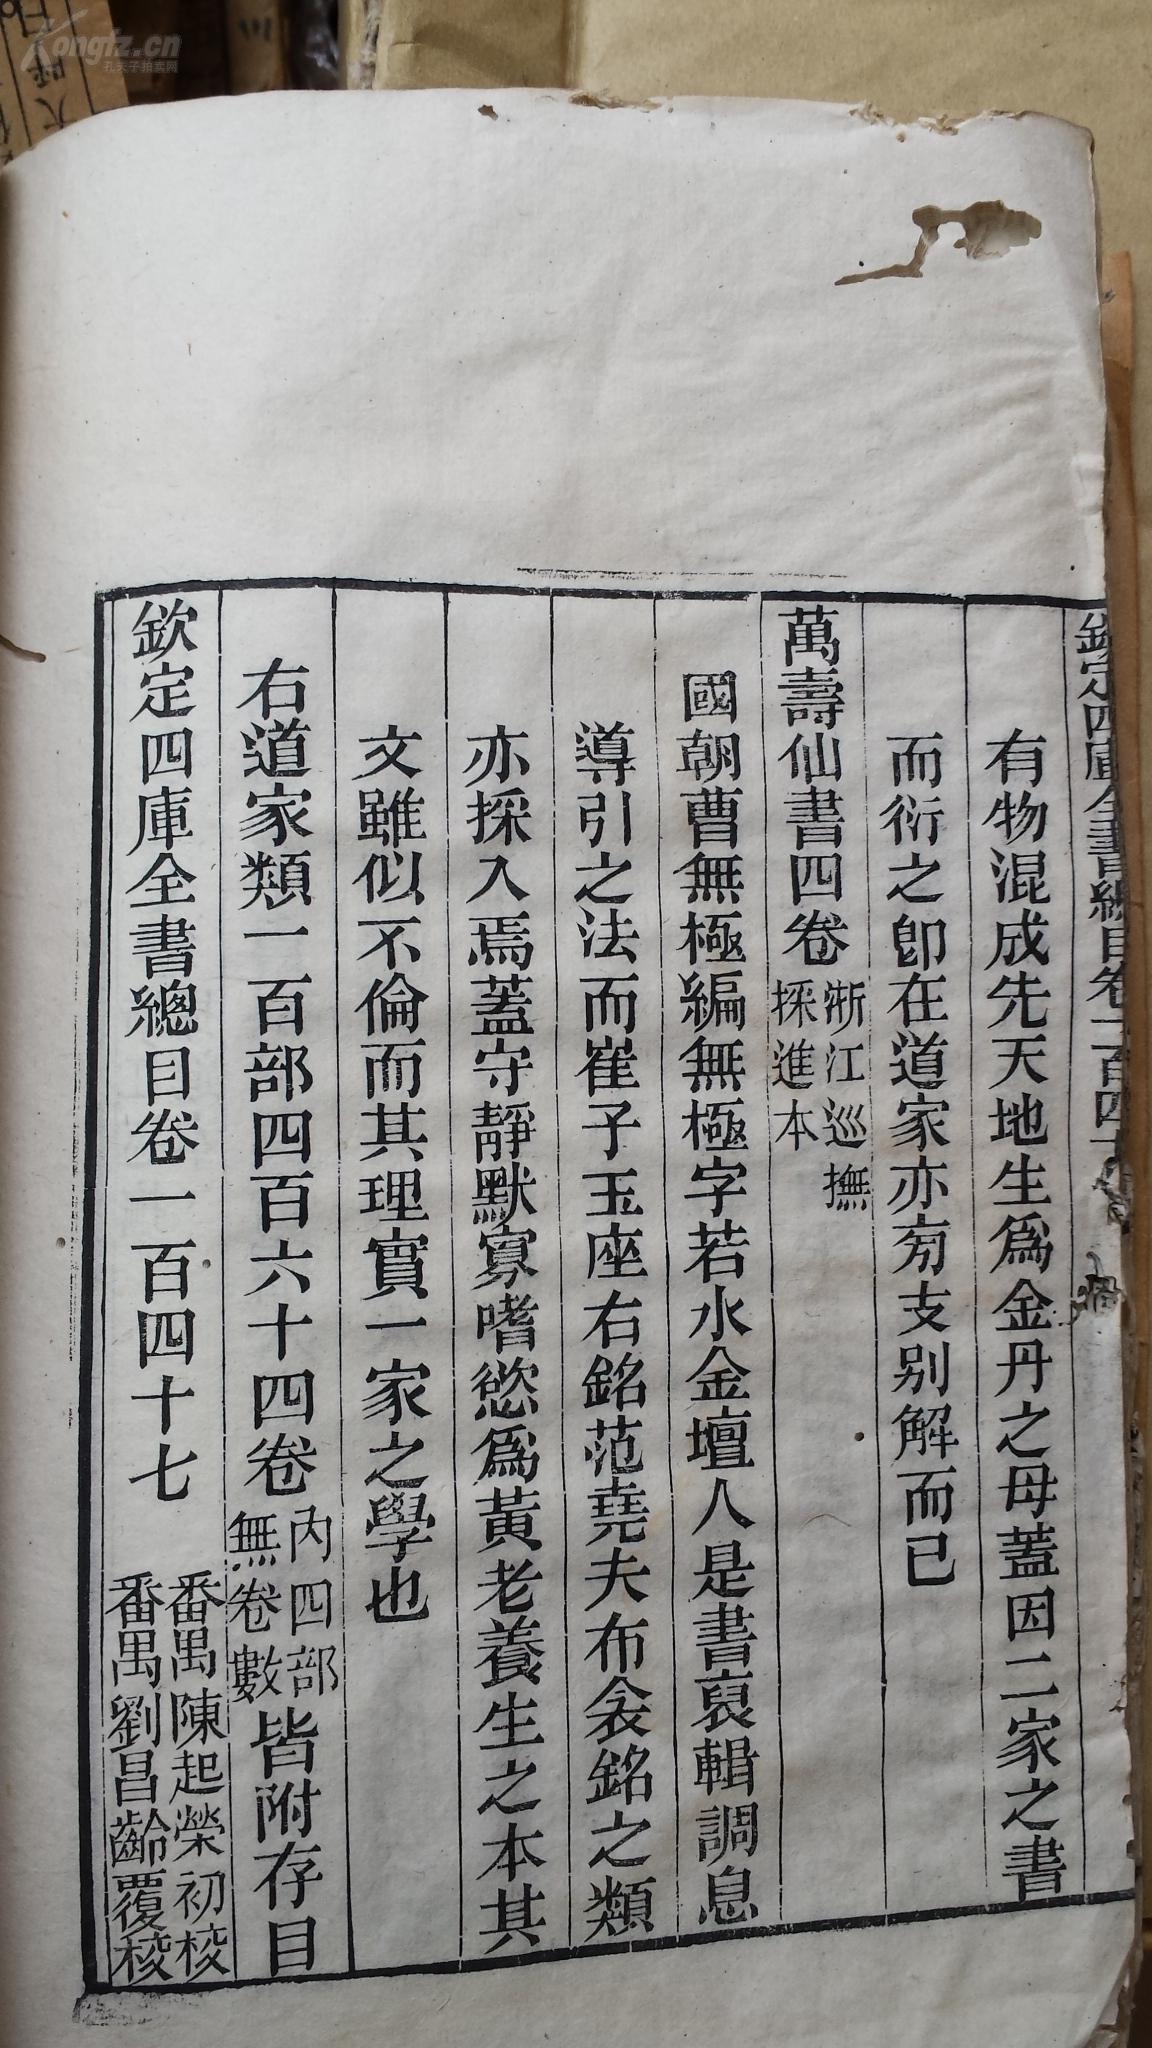 欽定四庫全書總目卷一百四十
有物混成先天地生爲金丹之母蓋因二家之書
而衍之卽在道家亦旁支別解而已
萬壽仙書四卷浙江巡撫
採進本
國朝曹無極編無極字若水金壇人是書裒輯調息
導引之法而崔子玉座右銘范堯夫布衾銘之類
亦採入焉蓋守靜默寡嗜慾爲黃老養生之本其
文雖似不倫而其理實一家之學也
右道家類一百部四百六十四卷內四部
無卷數皆附存目
欽定四庫全書總目卷一百四十七
番禺陳起榮初校
番禺劉昌齡覆校
Kongfz.cn
孔夫子拍卖网